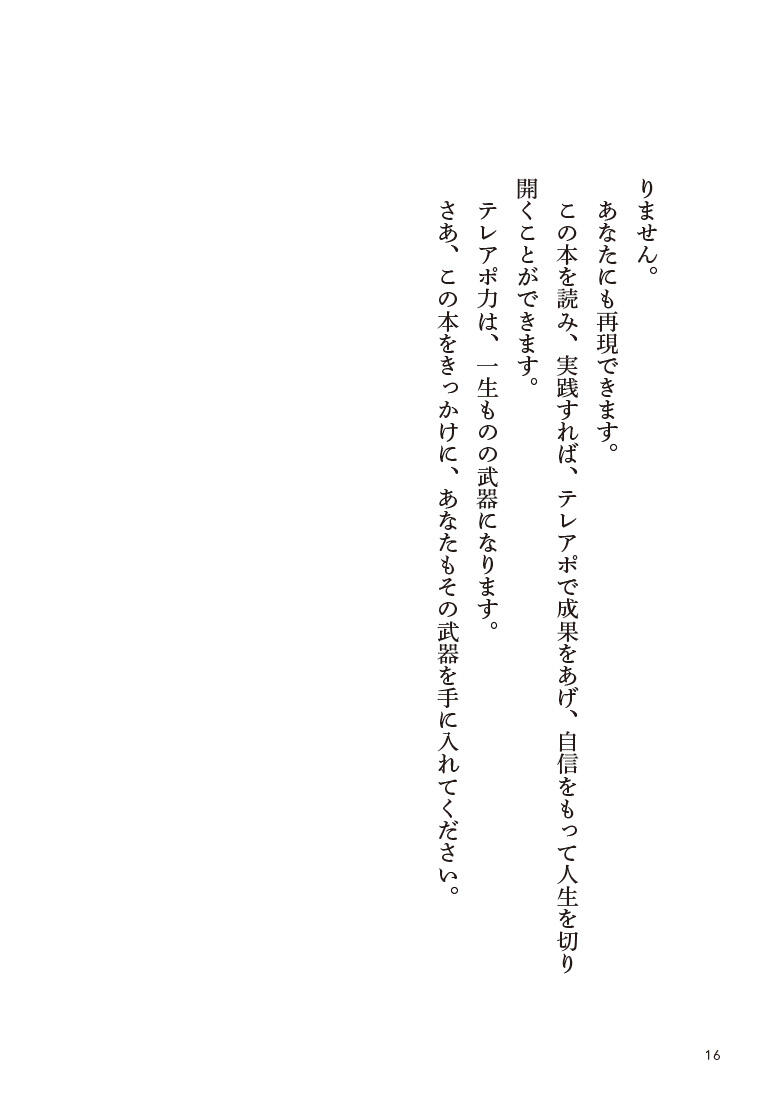 りません。
あなたにも再現できます。
この本を読み、実践すれば、テレアポで成果をあげ、自信をもって人生を切り
開くことができます。
テレアポ力は、一生ものの武器になります。
さあ、この本をきっかけに、あなたもその武器を手に入れてください。
16